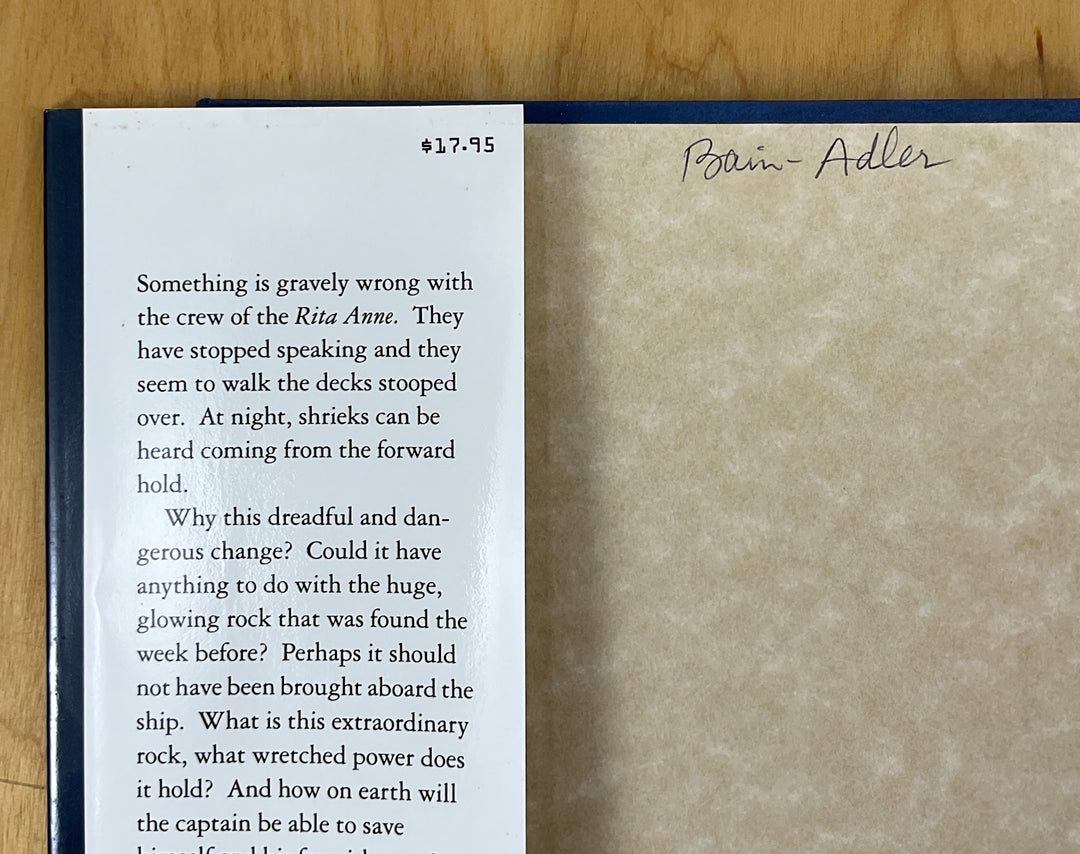 $17.95
Bain- Adler
Something is gravely wrong with
the crew of the Rita Anne. They
have stopped speaking and they
seem to walk the decks stooped
over. At night, shrieks can be
heard coming from the forward
hold.
Why this dreadful and dan-
gerous change? Could it have
anything to do with the huge,
glowing rock that was found the
week before? Perhaps it should
not have been brought aboard the
ship. What is this extraordinary
rock, what wretched power does
it hold? And how on earth will
the captain be able to save